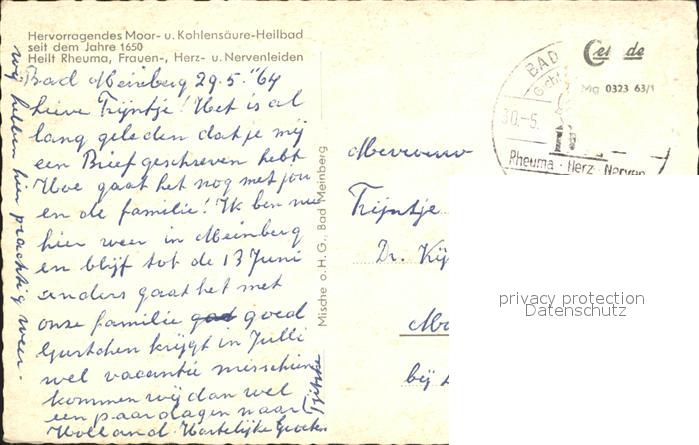 Hervorragendes Moor- u. Kohlensäure-Heilbad
seit dem Jahre 1650
Heilt Rheuma, Frauen-, Herz- u. Nervenleiden
Bad Meinberg 29.5.'64
Lieve Trijntje! Het is al
lang geleden dat je mij
een Brief geschreven hebt
Hoe gaat het nog met jou
en de familie! Ik ben nu
hier weer in Meinberg
en blijf tot de 13 Juni
anders gaat het met
onze familie goed
krijgt in Julli
wel vacantie misschien
kommen wij dan wel
een paar dagen naar
Holland. Hartelijke Groeten
wij hebben hier prachtig weer.
Mische o.H.G., Bad Meinberg
BAD
30.-5.
Rheuma · Herz · Nerven
Mg 0323 63/1
Mevrouw
Trijntje
Dr.
bij
privacy protection
Datenschutz